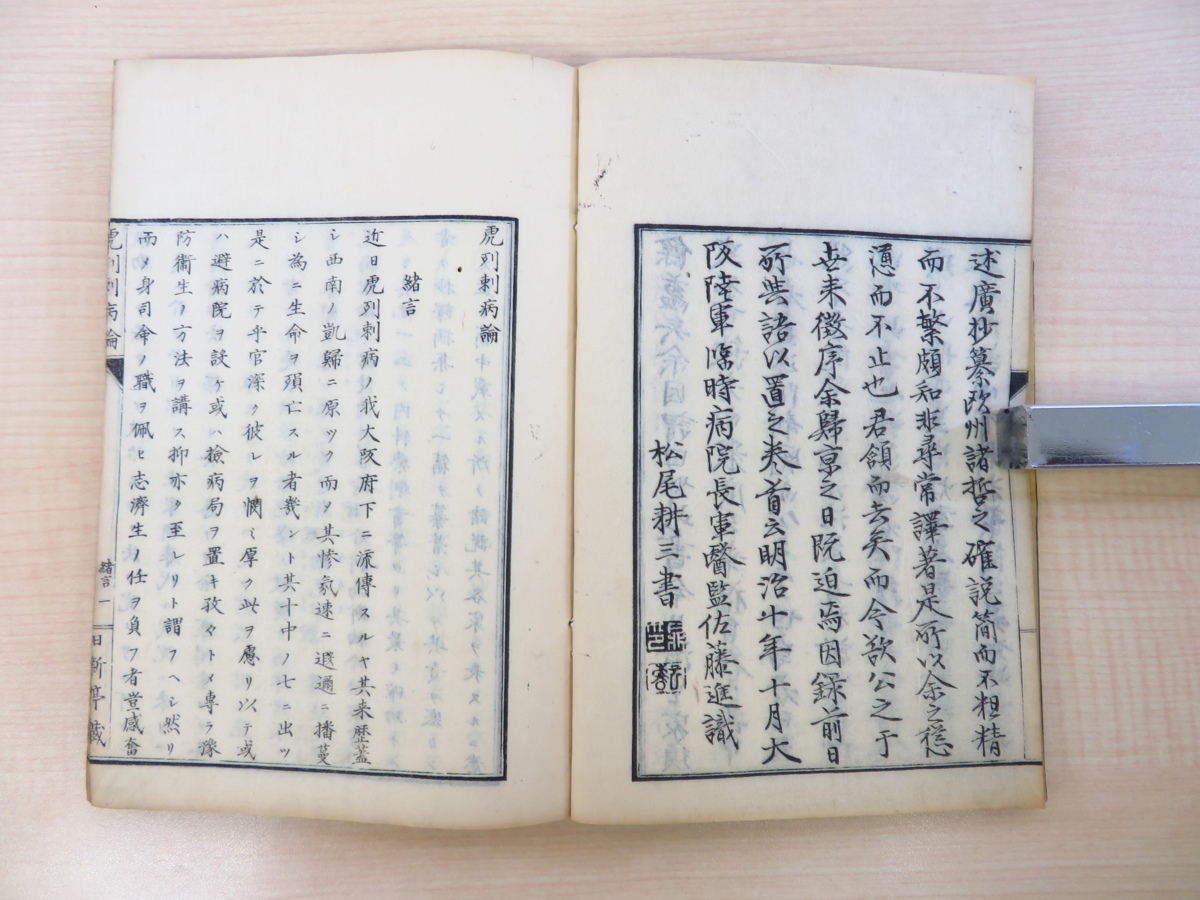 述廣抄纂欧州諸哲之確説簡而不粗精
而不繁頗知非尋常譯著是所以余之慫
慂而不止也君頷而去矣而今欲公之于
世来徴序余歸京之日既迫焉因録前日
所與語以置之巻首云明治十年十月大
阪陸軍臨時病院長軍醫監佐藤進識
松尾耕三書
虎列剌病論
緒言
近日虎列剌病ノ我大阪府下ニ流傳スルヤ其来歴蓋
シ西南ノ凱歸ニ原ツク而〆其惨気速ニ遐邇ニ播蔓
シ為ニ生命ヲ頭亡スル者幾ント其十中ノ七ニ出ツ
是ニ於テ乎官深ク彼レヲ憫ミ厚ク此ヲ慮リ以テ或
ハ避病院ヲ設ケ或ハ撿病局ヲ置キ孜々トメ専ラ豫
防衛生ノ方法ヲ講ス抑亦タ至レリト謂フヘシ然リ
而〆身司命ノ職ヲ佩ヒ志済生ノ任ヲ負フ者豈感奮
虎列剌病論
緒言 一
日新亭蔵